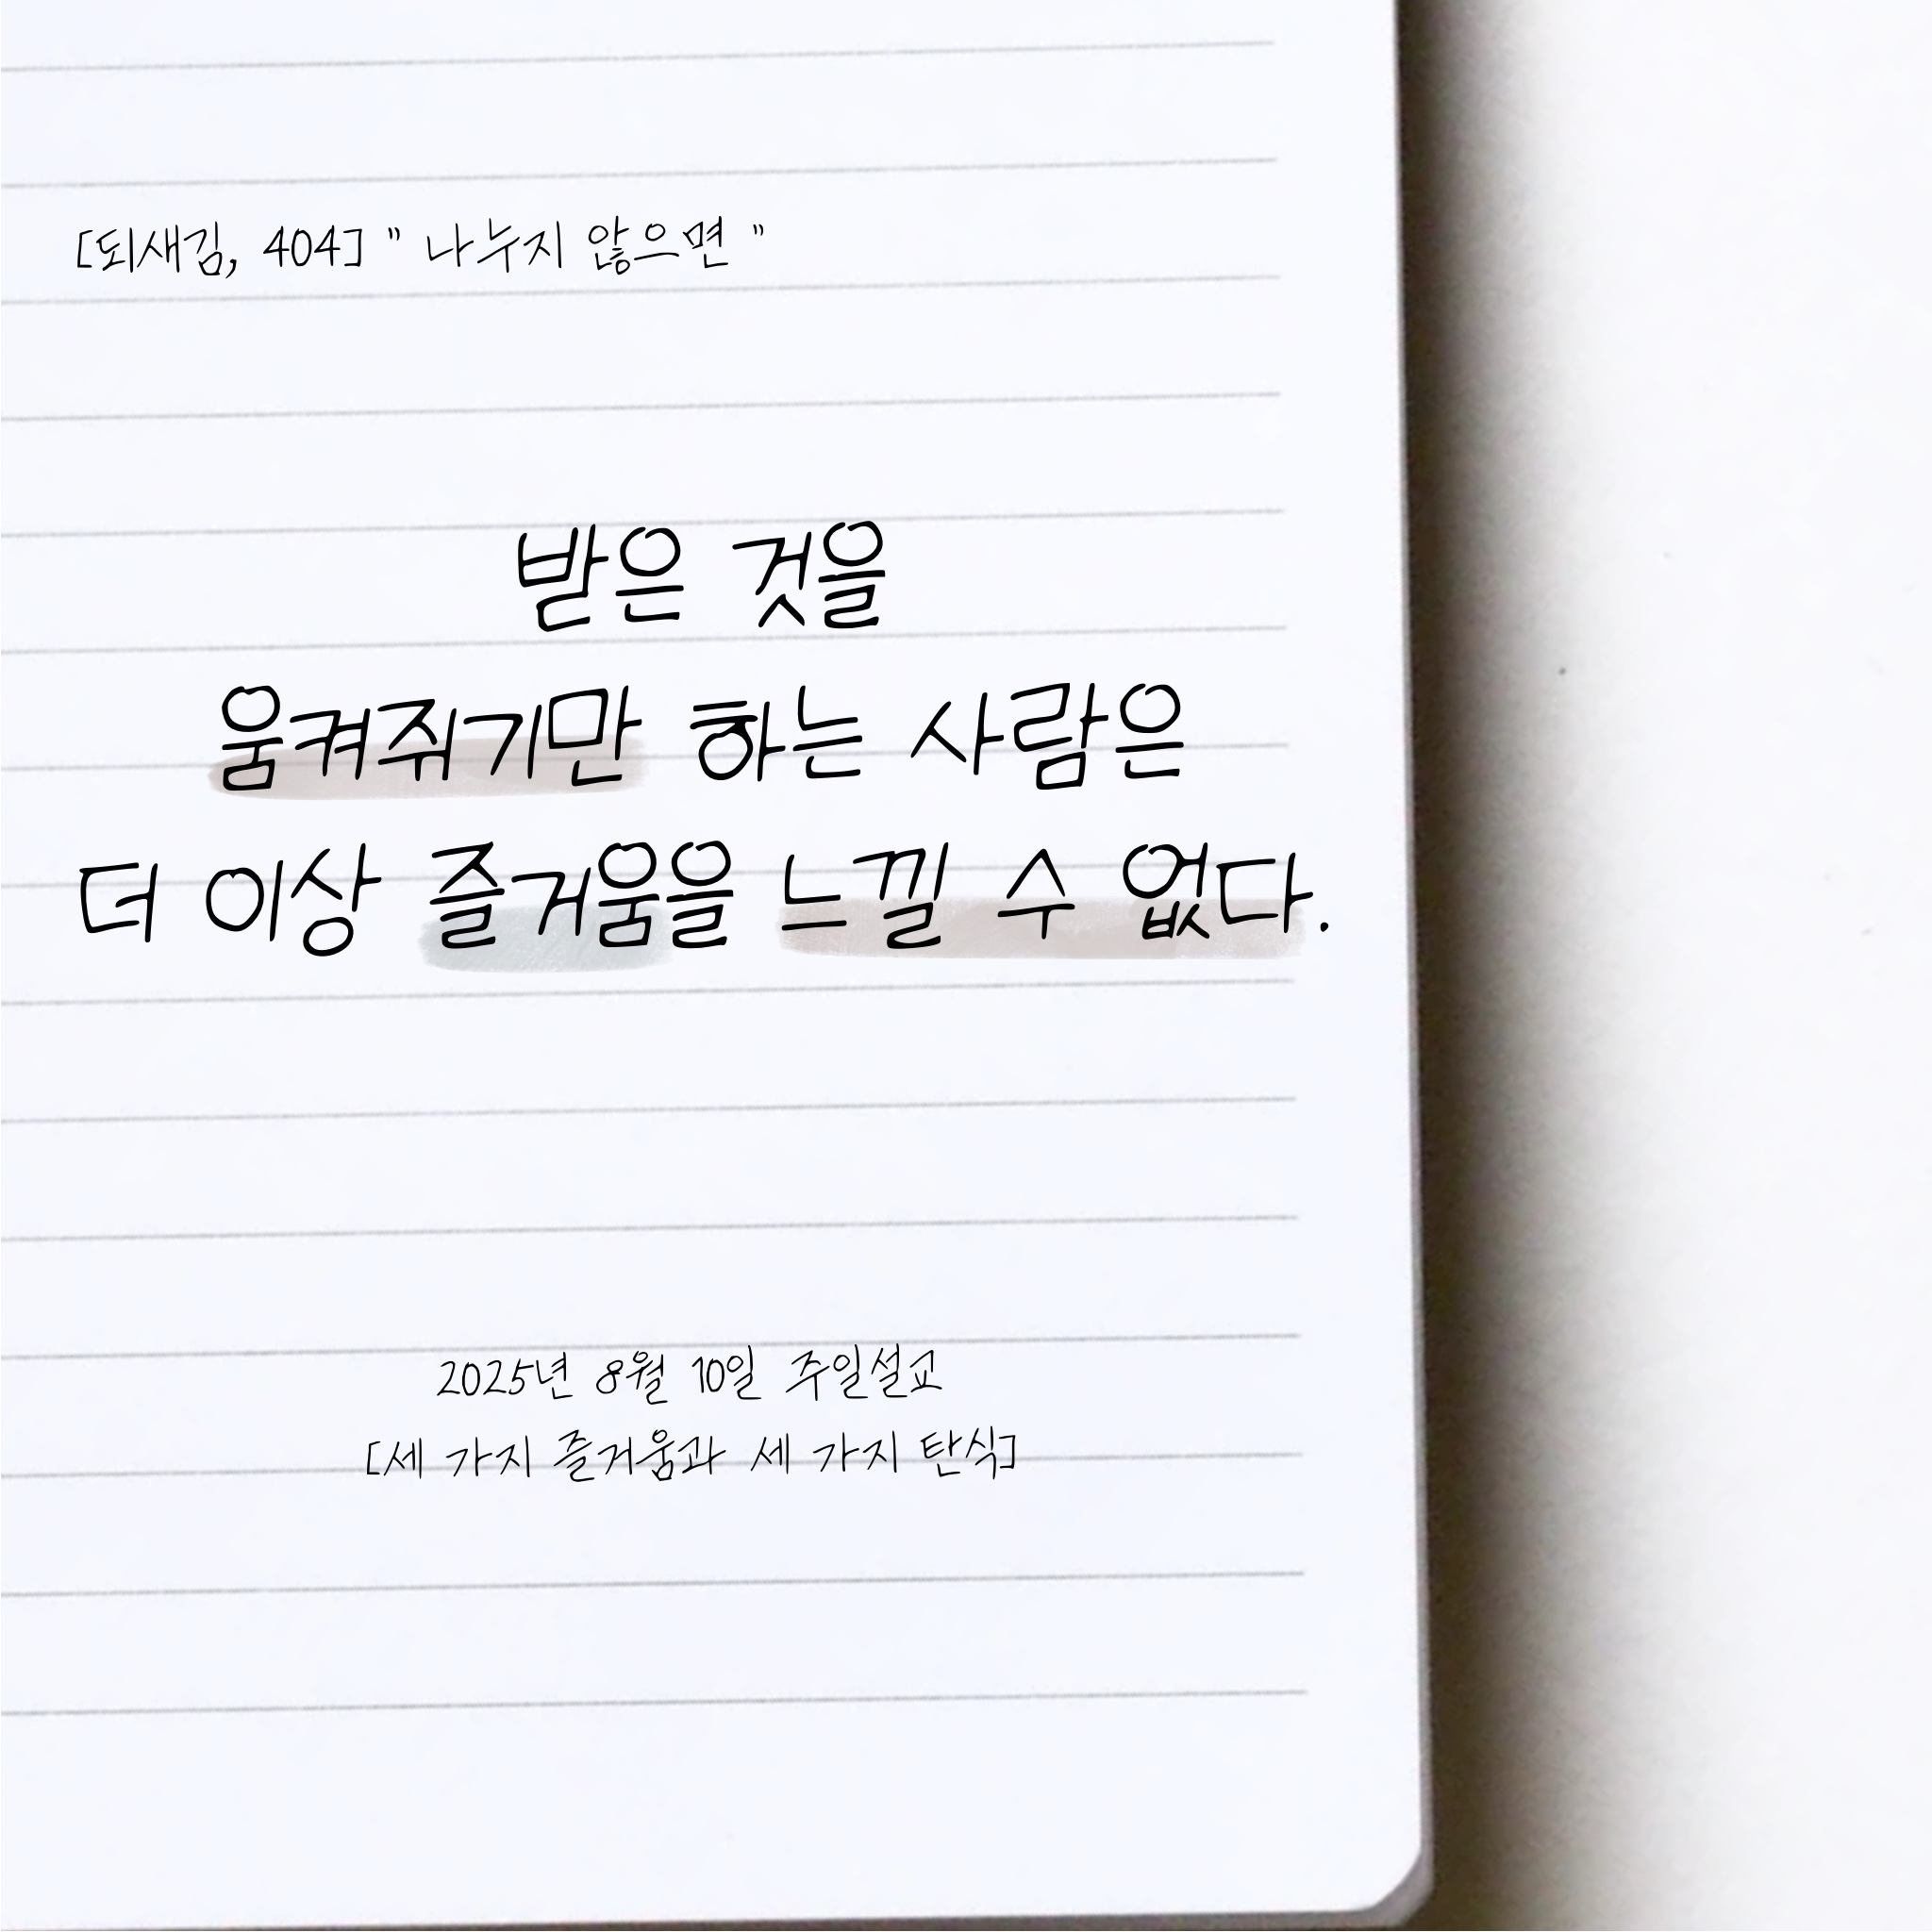 [되새김, 404] " 나누지 않으면 "
받은 것을
움켜쥐기만 하는 사람은
더 이상 즐거움을 느낄 수 없다.
2025년 8월 10일 주일설교
[세 가지 즐거움과 세 가지 탄식]